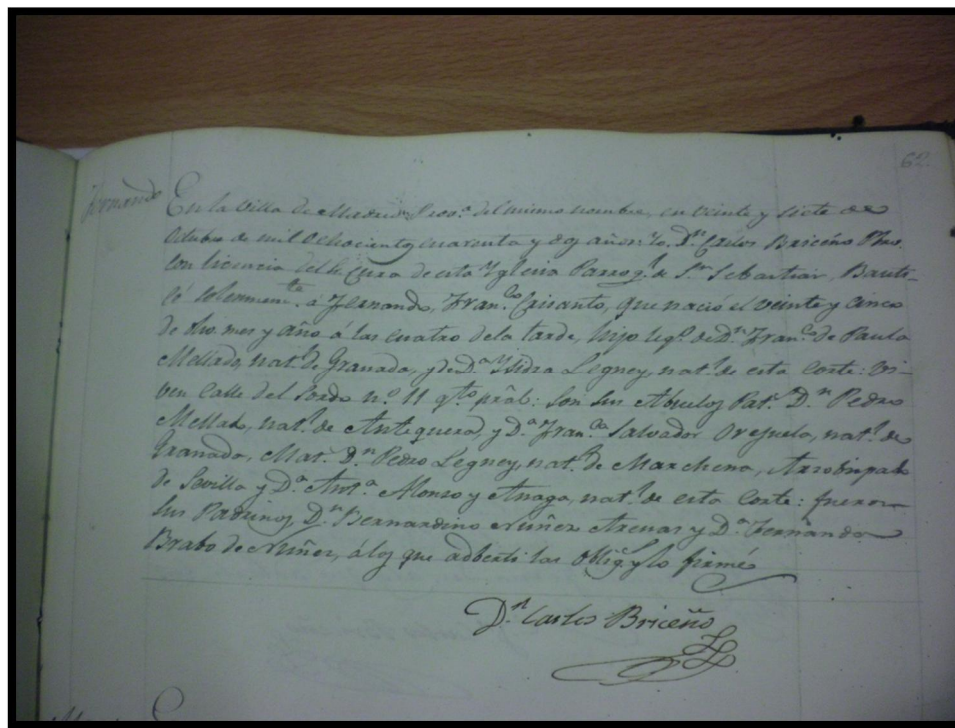 62.
Fernando
En la Villa de Madrid, Prov.ª del mismo nombre, en veinte y siete de
Octubre de mil ochocientos cuarenta y dos años: Yo, D.n Carlos Briceño Pbro.
con licencia del Sr. Cura de esta Yglesia Parroq.l de S.n Sebastian, Bauti-
cé solemnem.te a Fernando, Fran.co Crisanto, que nació el veinte y cinco
de dho. mes y año a las cuatro de la tarde, hijo leg.º de D.n Fran.co de Paula
Mellado, nat.l de Granada, y de D.ª Ysidra Legney, nat.l de esta Corte: vi-
ven Calle del Sordo n.º 11 q.to pràl: son sus Abuelos Pat.s D.n Pedro
Mellado, nat.l de Antequera, y D.ª Fran.ca Salvador Orejuela, nat.l de
Granada, Mat.s D.n Pedro Legney, nat.l de Marchena, Arzobispado
de Sevilla y D.ª Ant.ª Alonso y Anaga, nat.l de esta Corte: fueron
sus Padrinos D.n Bernardino Nuñez Arenas y D.ª Fernanda
Brabo de Nuñez, á los que adbertí las Oblig.s y lo firmé
D.n Carlos Briceño